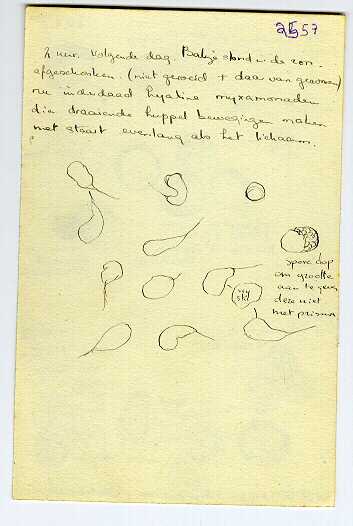 2657
7 uur. Volgende dag. Bakje stond in de zon.
afgeschonken. (niet geroerd + daar van genomen)
nu inderdaad hyaline myxamonaden
die draaiende huppel bewegingen maken
met staart even lang als het lichaam.
spore dop
om grootte
aan te geven
deze niet
met prisma